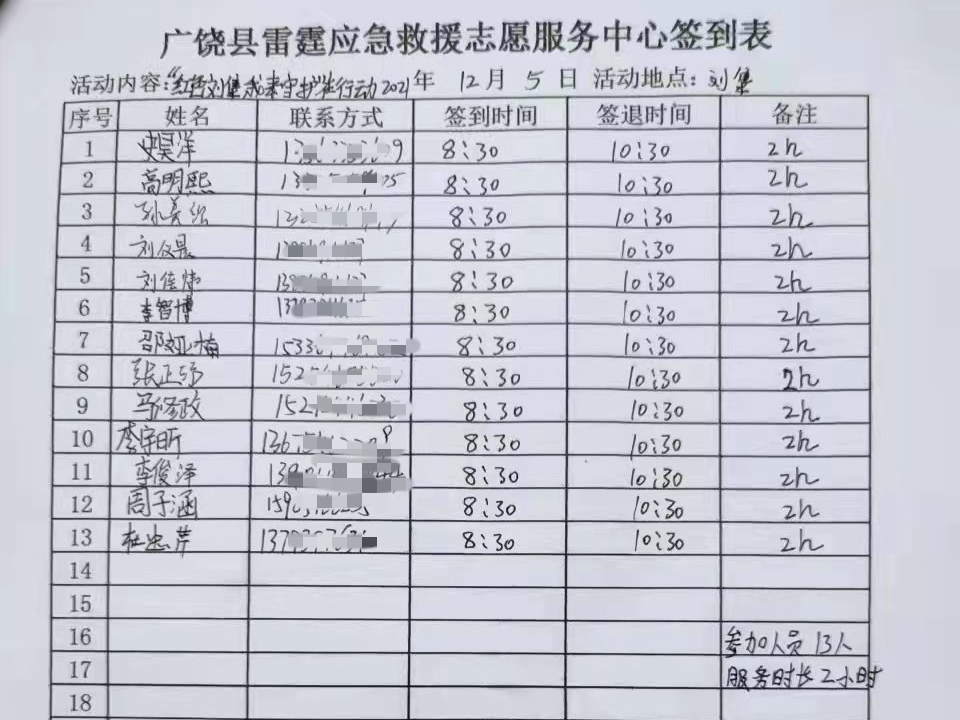 广饶县雷霆应急救援志愿服务中心签到表
活动内容:“红色刘集我来守护”进行动2021年 12月 5日 活动地点:刘集
序号 姓名 联系方式 签到时间 签退时间 备注
1 史昊洋 8:30 10:30 2h
2 高明熙 8:30 10:30 2h
3 8:30 10:30 2h
4 8:30 10:30 2h
5 刘佳炜 8:30 10:30 2h
6 李智博 8:30 10:30 2h
7 邵亚楠 8:30 10:30 2h
8 8:30 10:30 2h
9 8:30 10:30 2h
10 李宇昕 8:30 10:30 2h
11 李俊泽 8:30 10:30 2h
12 周子涵 8:30 10:30 2h
13 杜忠芹 8:30 10:30 2h
14
15
16 参加人员 13人
17 服务时长 2小时
18